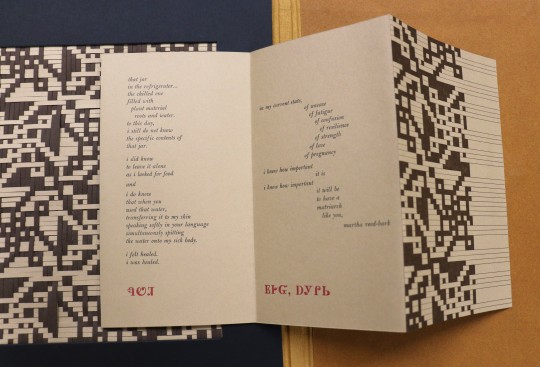 that jar
in the refrigerator...
the chilled one
filled with
plant material
roots and water.
to this day,
i still do not know
the specific contents of
that jar.
i did know
to leave it alone
as i looked for food
and
i do know
that when you
used that water,
transferring it to my skin
speaking softly in your language
simultaneously spitting
the water onto my sick body.
i felt healed.
i was healed.
in my current state,
of unease
of fatigue
of confusion
of resilience
of strength
of love
of pregnancy
i know how important
it is
i know how important
it will be
to have a
matriarch
like you,
martha reed-bark